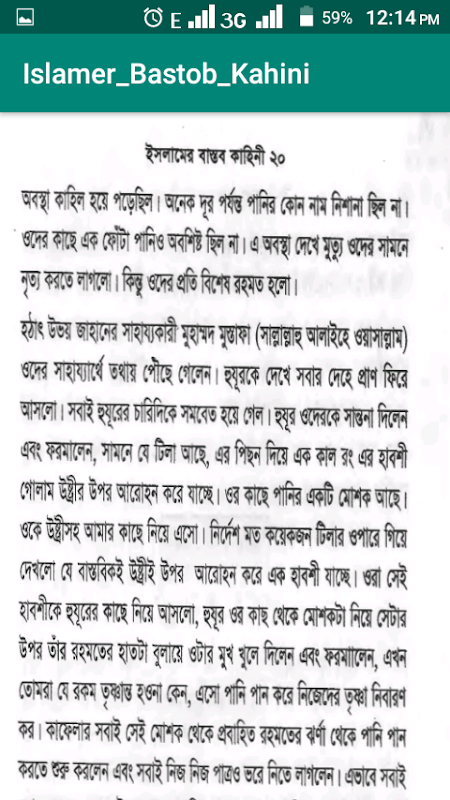 E 3G 59% 12:14 PM
Islamer_Bastob_Kahini
ইসলামের বাস্তব কাহিনী ২০
অবস্থা কাহিল হয়ে পড়েছিল। অনেক দূর পর্যন্ত পানির কোন নাম নিশানা ছিল না।
ওদের কাছে এক ফোঁটা পানিও অবশিষ্ট ছিল না। এ অবস্থা দেখে মৃত্যু ওদের সামনে
নৃত্য করতে লাগলো। কিন্তু ওদের প্রতি বিশেষ রহমত হলো।
হঠাৎ উভয় জাহানের সাহায্যকারী মুহাম্মদ মুস্তাফা (সাল্লাল্লাহু আলাইহে ওয়াসাল্লাম)
ওদের সাহায্যার্থে তথায় পৌঁছে গেলেন। হুযূরকে দেখে সবার দেহে প্রাণ ফিরে
আসলো। সবাই হুযূরের চারিদিকে সমবেত হয়ে গেল। হুযূর ওদেরকে সান্তনা দিলেন
এবং ফরমালেন, সামনে যে টিলা আছে, এর পিছন দিয়ে এক কাল রং এর হাবশী
গোলাম উষ্ট্রীর উপর আরোহন করে যাচ্ছে। ওর কাছে পানির একটি মোশক আছে।
ওকে উষ্ট্রীসহ আমার কাছে নিয়ে এসো। নির্দেশ মত কয়েকজন টিলার ওপারে গিয়ে
দেখলো যে বাস্তবিকই উষ্ট্রীই উপর আরোহন করে এক হাবশী যাচ্ছে। ওরা সেই
হাবশীকে হুযূরের কাছে নিয়ে আসলো, হুযূর ওর কাছ থেকে মোশকটা নিয়ে সেটার
উপর তাঁর রহমতের হাতটা বুলায়ে ওটার মুখ খুলে দিলেন এবং ফরমাালেন, এখন
তোমরা যে রকম তৃষ্ণান্ত হওনা কেন, এসো পানি পান করে নিজেদের তৃষ্ণা নিবারণ
কর। কাফেলার সবাই সেই মোশক থেকে প্রবাহিত রহমতের ঝর্ণা থেকে পানি পান
করতে শুরু করলেন এবং সবাই নিজ নিজ পাত্রও ভরে নিতে লাগলেন। এভাবে সবাই